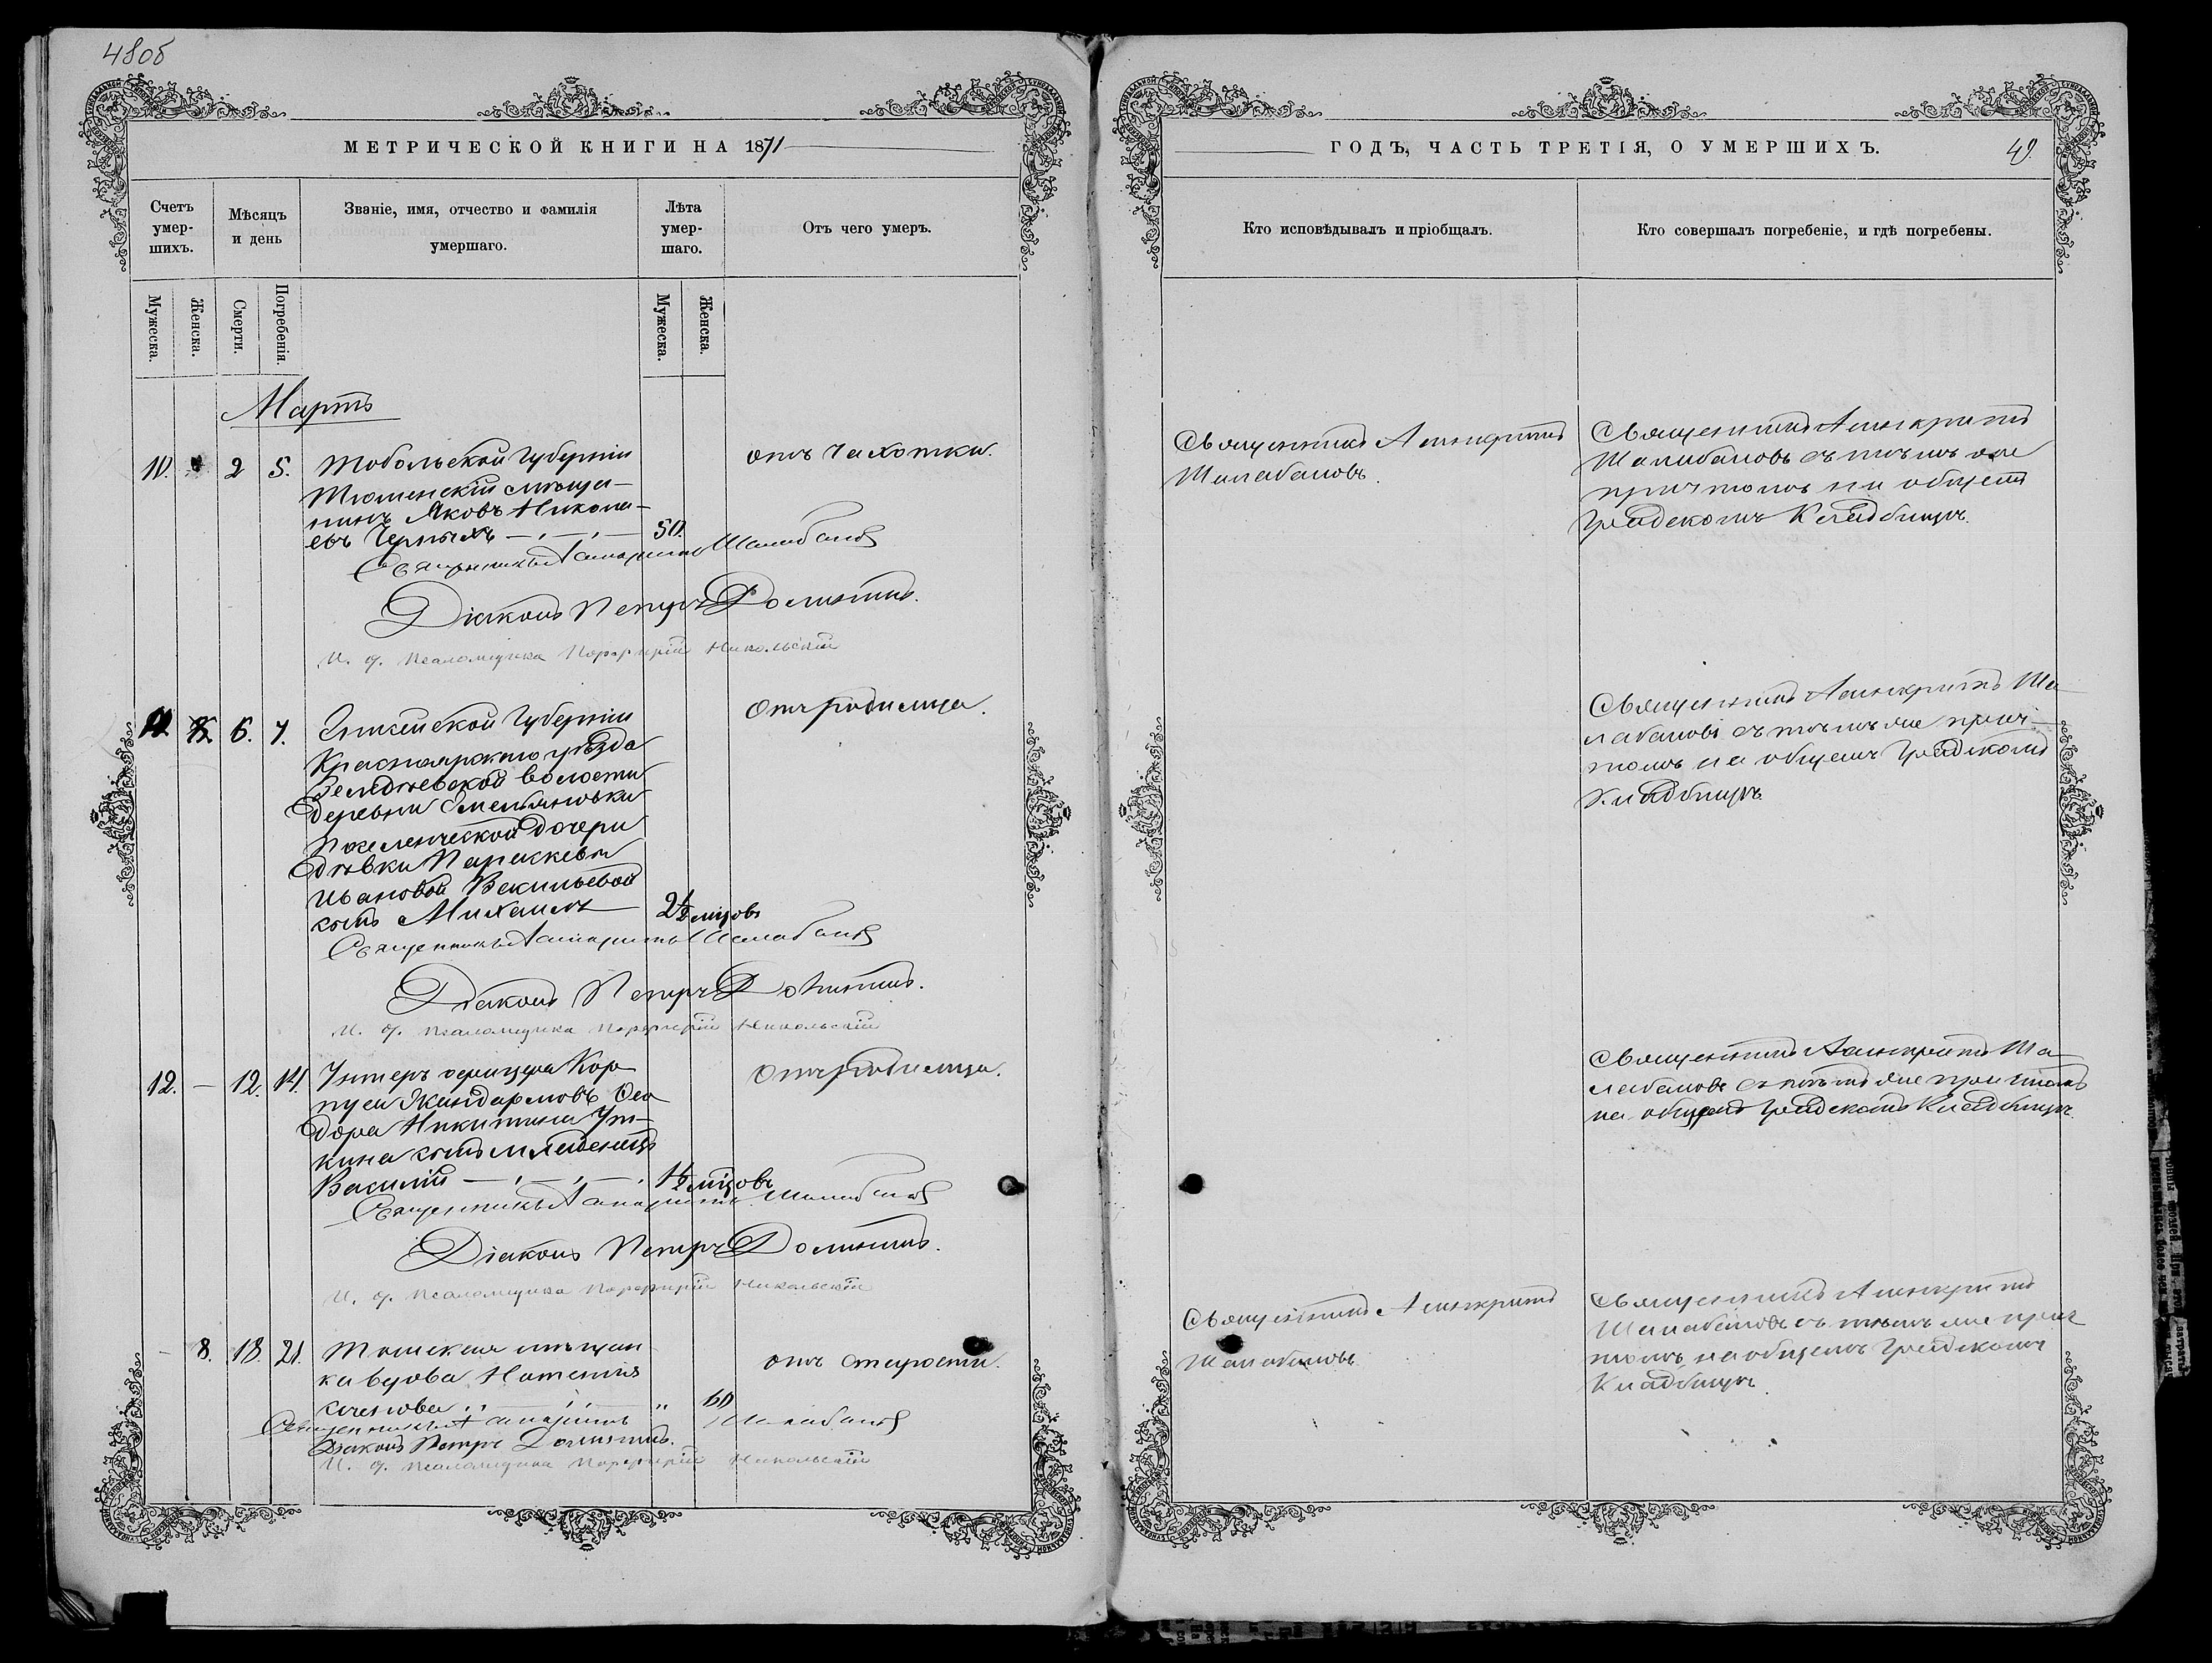 48об
МЕТРИЧЕСКОЙ КНИГИ НА 1871
Счетъ умер-шихъ.
Мѣсяцъ и день
Званіе, имя, отчество и фамилія умершаго.
Лѣта умер-шаго.
Отъ чего умеръ.
Мужеска.
Женска.
Смерти.
Погребенія.
Мужеска.
Женска.
Мартъ
10.
2
5.
Тобольской Губерніи
Тюменскій мѣща-
нинъ Яковъ Никола-
евъ Черныхъ
50.
отъ чахотки.
Священникъ Асинкритъ Шалабановъ
Діаконъ Петръ
И. д. Псаломщика Порфирій Никольскій
11.
6.
7.
Енисейской Губерніи
Красноярскаго уѣзда
Заледѣевской волости
Деревни Емельяновки
поселенческой дочери
дѣвки Параскевы
Ивановой Васильевой
сынъ Михаилъ
2½ мѣсяцовъ
Отъ родимца.
Священникъ Асинкритъ Шалабановъ
Діаконъ Петръ
И. д. Псаломщика Порфирій Никольскій
12.
12.
14.
Унтеръ офицера Кор-
пуса Жандармовъ Ѳео
дора Никитина Ут-
кина сынъ младенецъ
Василій
1½ мѣсяцовъ
Отъ родимца.
Священникъ Асинкритъ Шалабановъ
Діаконъ Петръ
И. д. Псаломщика Порфирій Никольскій
8.
18.
21.
Томская мѣщан
ка вдова Наталія
60
отъ старости.
Священникъ Асинкритъ Шалабановъ
Діаконъ Петръ
И. д. Псаломщика Порфирій Никольскій
ГОДЪ, ЧАСТЬ ТРЕТІЯ, О УМЕРШИХЪ.
49.
Кто исповѣдывалъ и пріобщалъ.
Кто совершалъ погребеніе, и гдѣ погребены.
Священникъ Асинкритъ
Шалабановъ.
Священникъ Асинкритъ
Шалабановъ съ тѣмъ же
причтомъ на общемъ
Градскомъ Кладбищѣ.
Священникъ Асинкритъ Ша-
лабановъ съ тѣмъ же прич-
томъ на общемъ Градскомъ
Кладбищѣ
Священникъ Асинкритъ Ша-
лабановъ съ тѣмъ же причтомъ
на общемъ Градскомъ Кладбищѣ
Священникъ Асинкритъ
Шалабановъ
Священникъ Асинкритъ
Шалабановъ съ тѣмъ же прич
томъ на общемъ Градскомъ
Кладбищѣ.